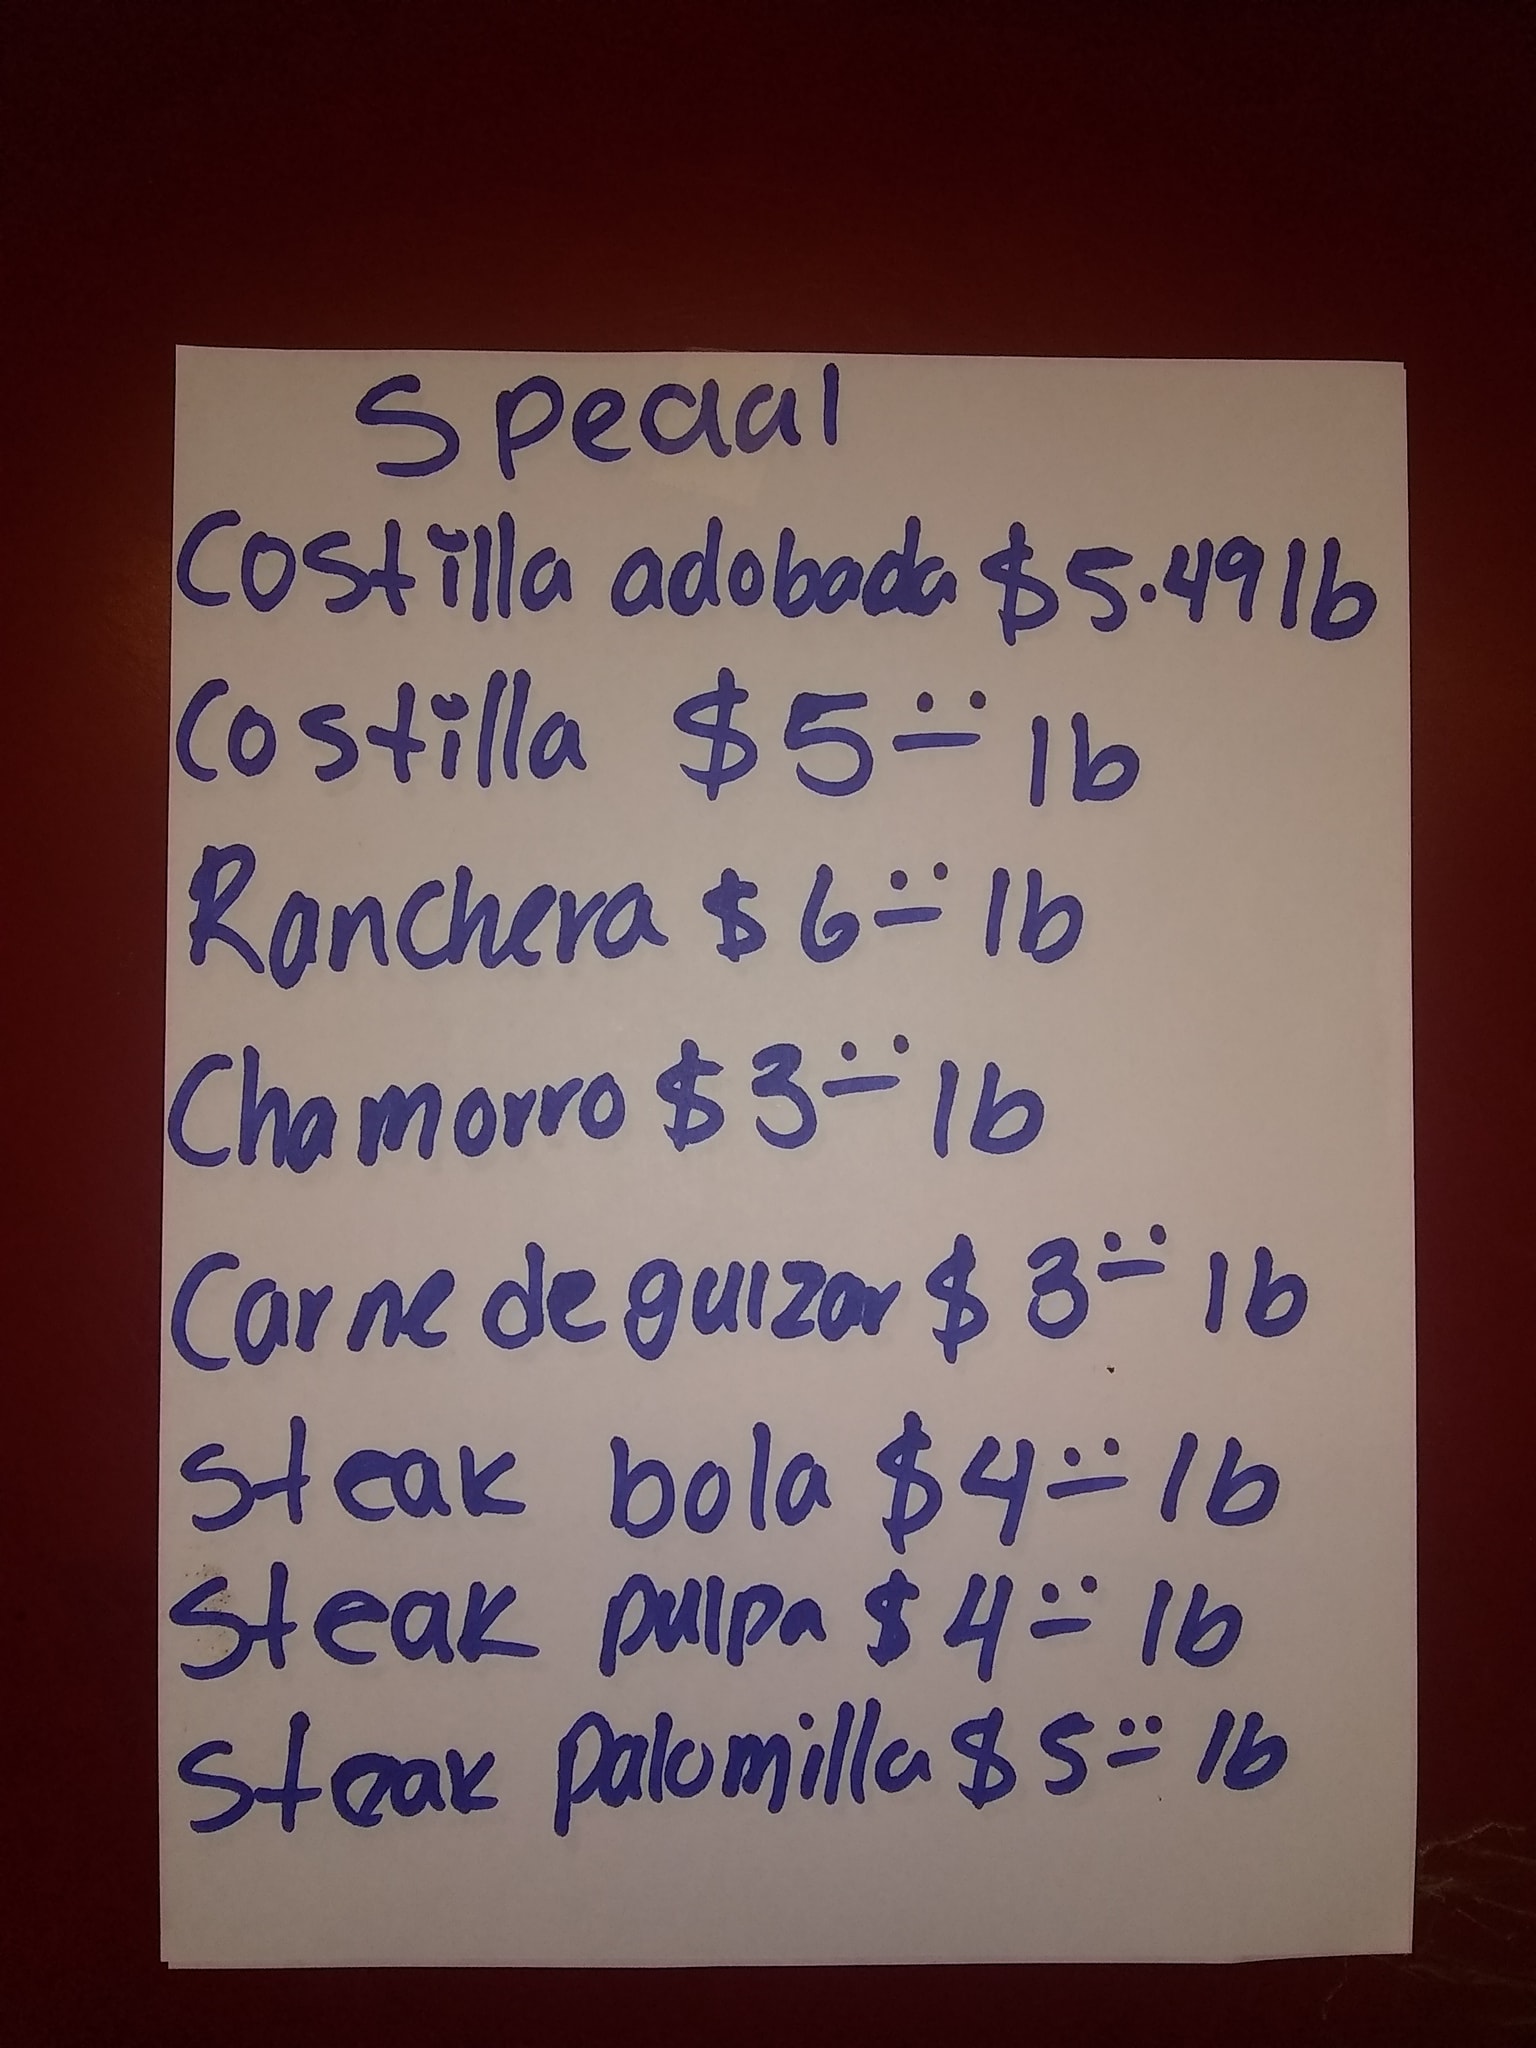 Special
Costilla adobada $5.49 lb
Costilla $5 lb
Ranchera $6 lb
Chamorro $3 lb
Carne de guizar $3 lb
Steak bola $4 lb
Steak pulpa $4 lb
Steak palomilla $5 lb